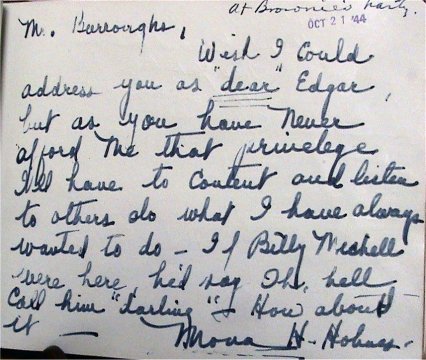 at Brownie's party.
OCT 21 '44
Mr. Burroughs,
Wish I could
address you as "dear" Edgar,
but as you have never
afford me that privelege
I'll have to content and listen
to others do what I have always
wanted to do – If Billy
were here, he'd say Oh, hell
Call him "darling" & How about
it —
Mona H. Holmes -